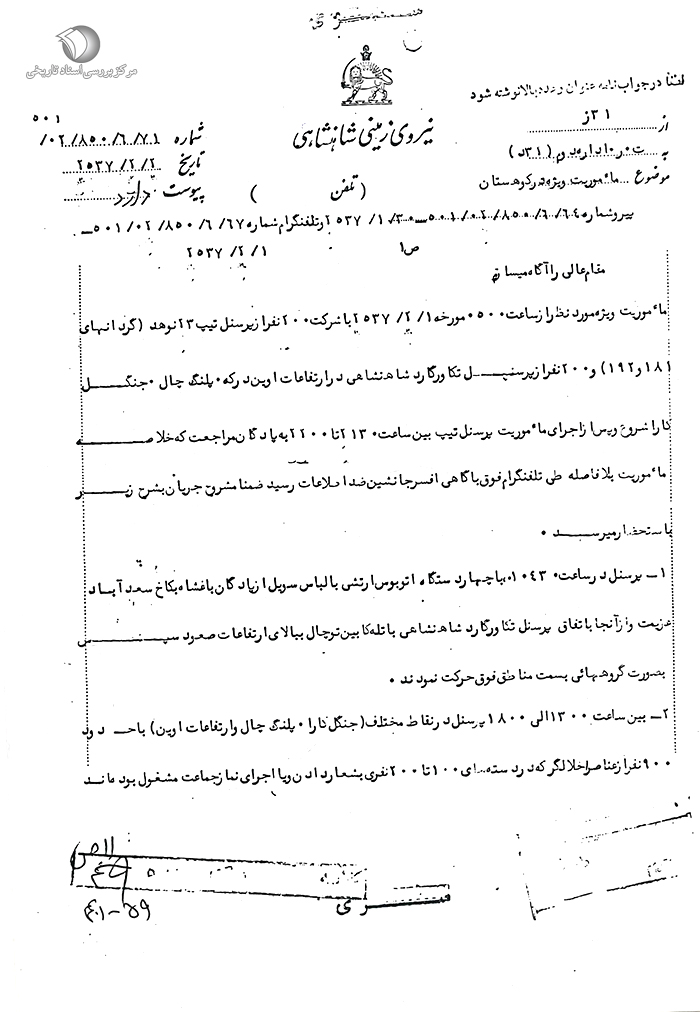 مرکز بررسی اسناد تاریخی
لطفا در جواب نامه عنوان و عدد بالا نوشته شود
نیروی زمینی شاهنشاهی
از ۳۱ز
به اداره دوم (۳۱د)
موضوع مأموریت ویژه در کوهستان
۵۰۱
شماره ۰۲/۸۵۰/۶/۷۱/
تاریخ ۲۵۳۷/۲/۲
پیوست دارد
(تلفن )
پیرو شماره ۵۰۱/۰۲/۸۵۰/۶/۶۴-۲۵۳۷/۱/۳۰ و تلفنگرام شماره ۵۰۱/۰۲/۸۵۰/۶/۶۷-
۲۵۳۷/۲/۱
مقام عالی را آگاه میسازد
مأموریت ویژه مورد نظر از ساعت ۰۵۰۰ مورخه ۲۵۳۷/۲/۱ با شرکت ۲۰۰ نفر از پرسنل تیپ ۲۳ نوهد (گردانهای
۱۸۱ و ۱۹۲) و ۲۰۰ نفر از پرسنل تکاور گارد شاهنشاهی در ارتفاعات اوین درکه، پلنگ چال، جنگل
کارا شروع و پس از اجرای مأموریت پرسنل تیپ بین ساعت ۲۱۳۰ تا ۲۲۰۰ به پادگان مراجعت که خلاصه
مأموریت بلافاصله طی تلفنگرام فوق باگاهی افسر جانشین ضداطلاعات رسید ضمنا مشروح جریان بشرح زیر
باستحضار میرسد.
۱- پرسنل در ساعت ۱۰۴۳۰ با چهار دستگاه اتوبوس ارتشی با لباس سویل از پادگان باغشاه بکاخ سعدآباد
عزیمت و از آنجا باتفاق پرسنل تکاور گارد شاهنشاهی با تله کابین توچال ببالای ارتفاعات صعود سپس
بصورت گروههائی بسمت مناطق فوق حرکت نمودند.
۲- بین ساعت ۱۳۰۰ الی ۱۸۰۰ پرسنل در نقاط مختلف (جنگل کارا، پلنگ چال و ارتفاعات اوین) با حدود
۹۰۰ نفر از عناصر اخلالگر که در دسته های ۱۰۰ تا ۲۰۰ نفری بشعار دادن و یا اجرای نماز جماعت مشغول بوده اند